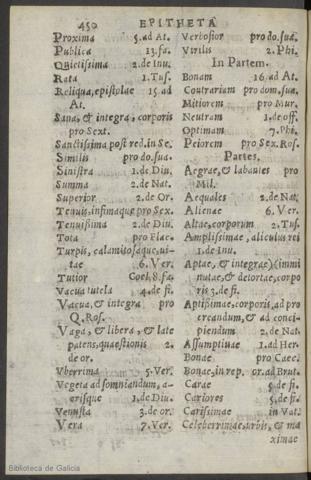 450 EPITHETA
Proxima 5. ad At.
Publica 13. fa.
Quietissima 2. de Inu.
Rata 1. Tus.
Reliqua, epistolae 15 ad
At.
Sana, & integra, corporis
pro Sext.
Sanctissima post red. in Se.
Similis pro do. sua.
Sinistra 1. de Diu.
Summa 2. de Nat.
Superior 2. de Or.
Tenuis, infimaque pro Sex.
Tenuissima 2. de Diu.
Tota pro Flac.
Turpis, calamitosaque, ui-
tae 6. Ver.
Tutior Coel. 8. fa.
Vacua tutela 4. de fi.
Vacua, & integra pro
Q. Ros.
Vaga, & libera, & late
patens, quaestionis 2.
de or.
Vberrima 5. Ver.
Vegeta ad somniandum, a-
crisque 1. de Diu.
Venusta 3. de or.
Vera 7. Ver.
Verbosior pro do. sua.
Virilis 2. Phi.
In Partem.
Bonam 16. ad At.
Contrariam pro dom. sua.
Mitiorem pro Mur.
Neutram 1. de off.
Optimam 7. Phi.
Peiorem pro Sex. Ros.
Partes.
Aegrae, & labantes pro
Mil.
Aequales 2. de Nat.
Alienae 6. Ver.
Altae, corporum 2. Tus.
Amplissimae, alicuius rei
1. de Inu.
Aptae, & integrae)(immi
nutae, & detortae, corpo
ris 3. de fi.
Aptissimae, corporis, ad pro
creandum, & ad conci-
piendum 2. de Nat.
Assumptiuae 1. ad Her.
Bonae pro Caec.
Bonae, in rep. or. ad Brut.
Carae 5. de fi.
Cariores 5. de fi.
Carissimae in Vat.
Celeberrimae, urbis, & ma
ximae
Biblioteca de Galicia